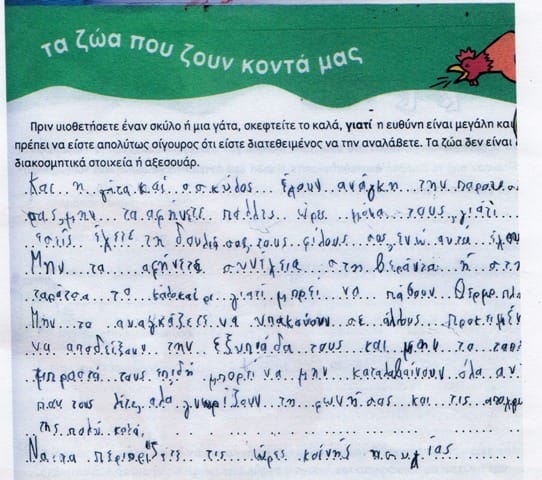 τα ζώα που ζουν κοντά μας
Πριν υιοθετήσετε έναν σκύλο ή μια γάτα, σκεφτείτε το καλά, γιατί η ευθύνη είναι μεγάλη και
πρέπει να είστε απολύτως σίγουρος ότι είστε διατεθειμένος να την αναλάβετε. Τα ζώα δεν είναι
διακοσμητικά στοιχεία ή αξεσουάρ.
Και η γάτα και ο σκύλος έχουν ανάγκη την
σας μην τα αφήνετε πολλές ώρες μόνα τους γιατί
εσείς έχετε τη δουλιά σας, τους φίλους σας ενώ αυτά
Μην τα αφήνετε συνέχεια στη βεράντα ή στη
ταράτσα το καλοκαίρι γιατί μπορεί να πάθουν θερμοπλη
Μην τα αναγκάζετε να υπακούουν σε άλλους προκιμέν
να αποδείξουν την εξυπνάδα τους και μην τα
τους επιδή μπορεί να μην καταλαβαίνουν όλα αυ
που τους λέτε, αλα γνωρίζουν τη φωνή σας και τις
της πολύ καλά,
Να τα περιορίζετε τις ώρες κοινής